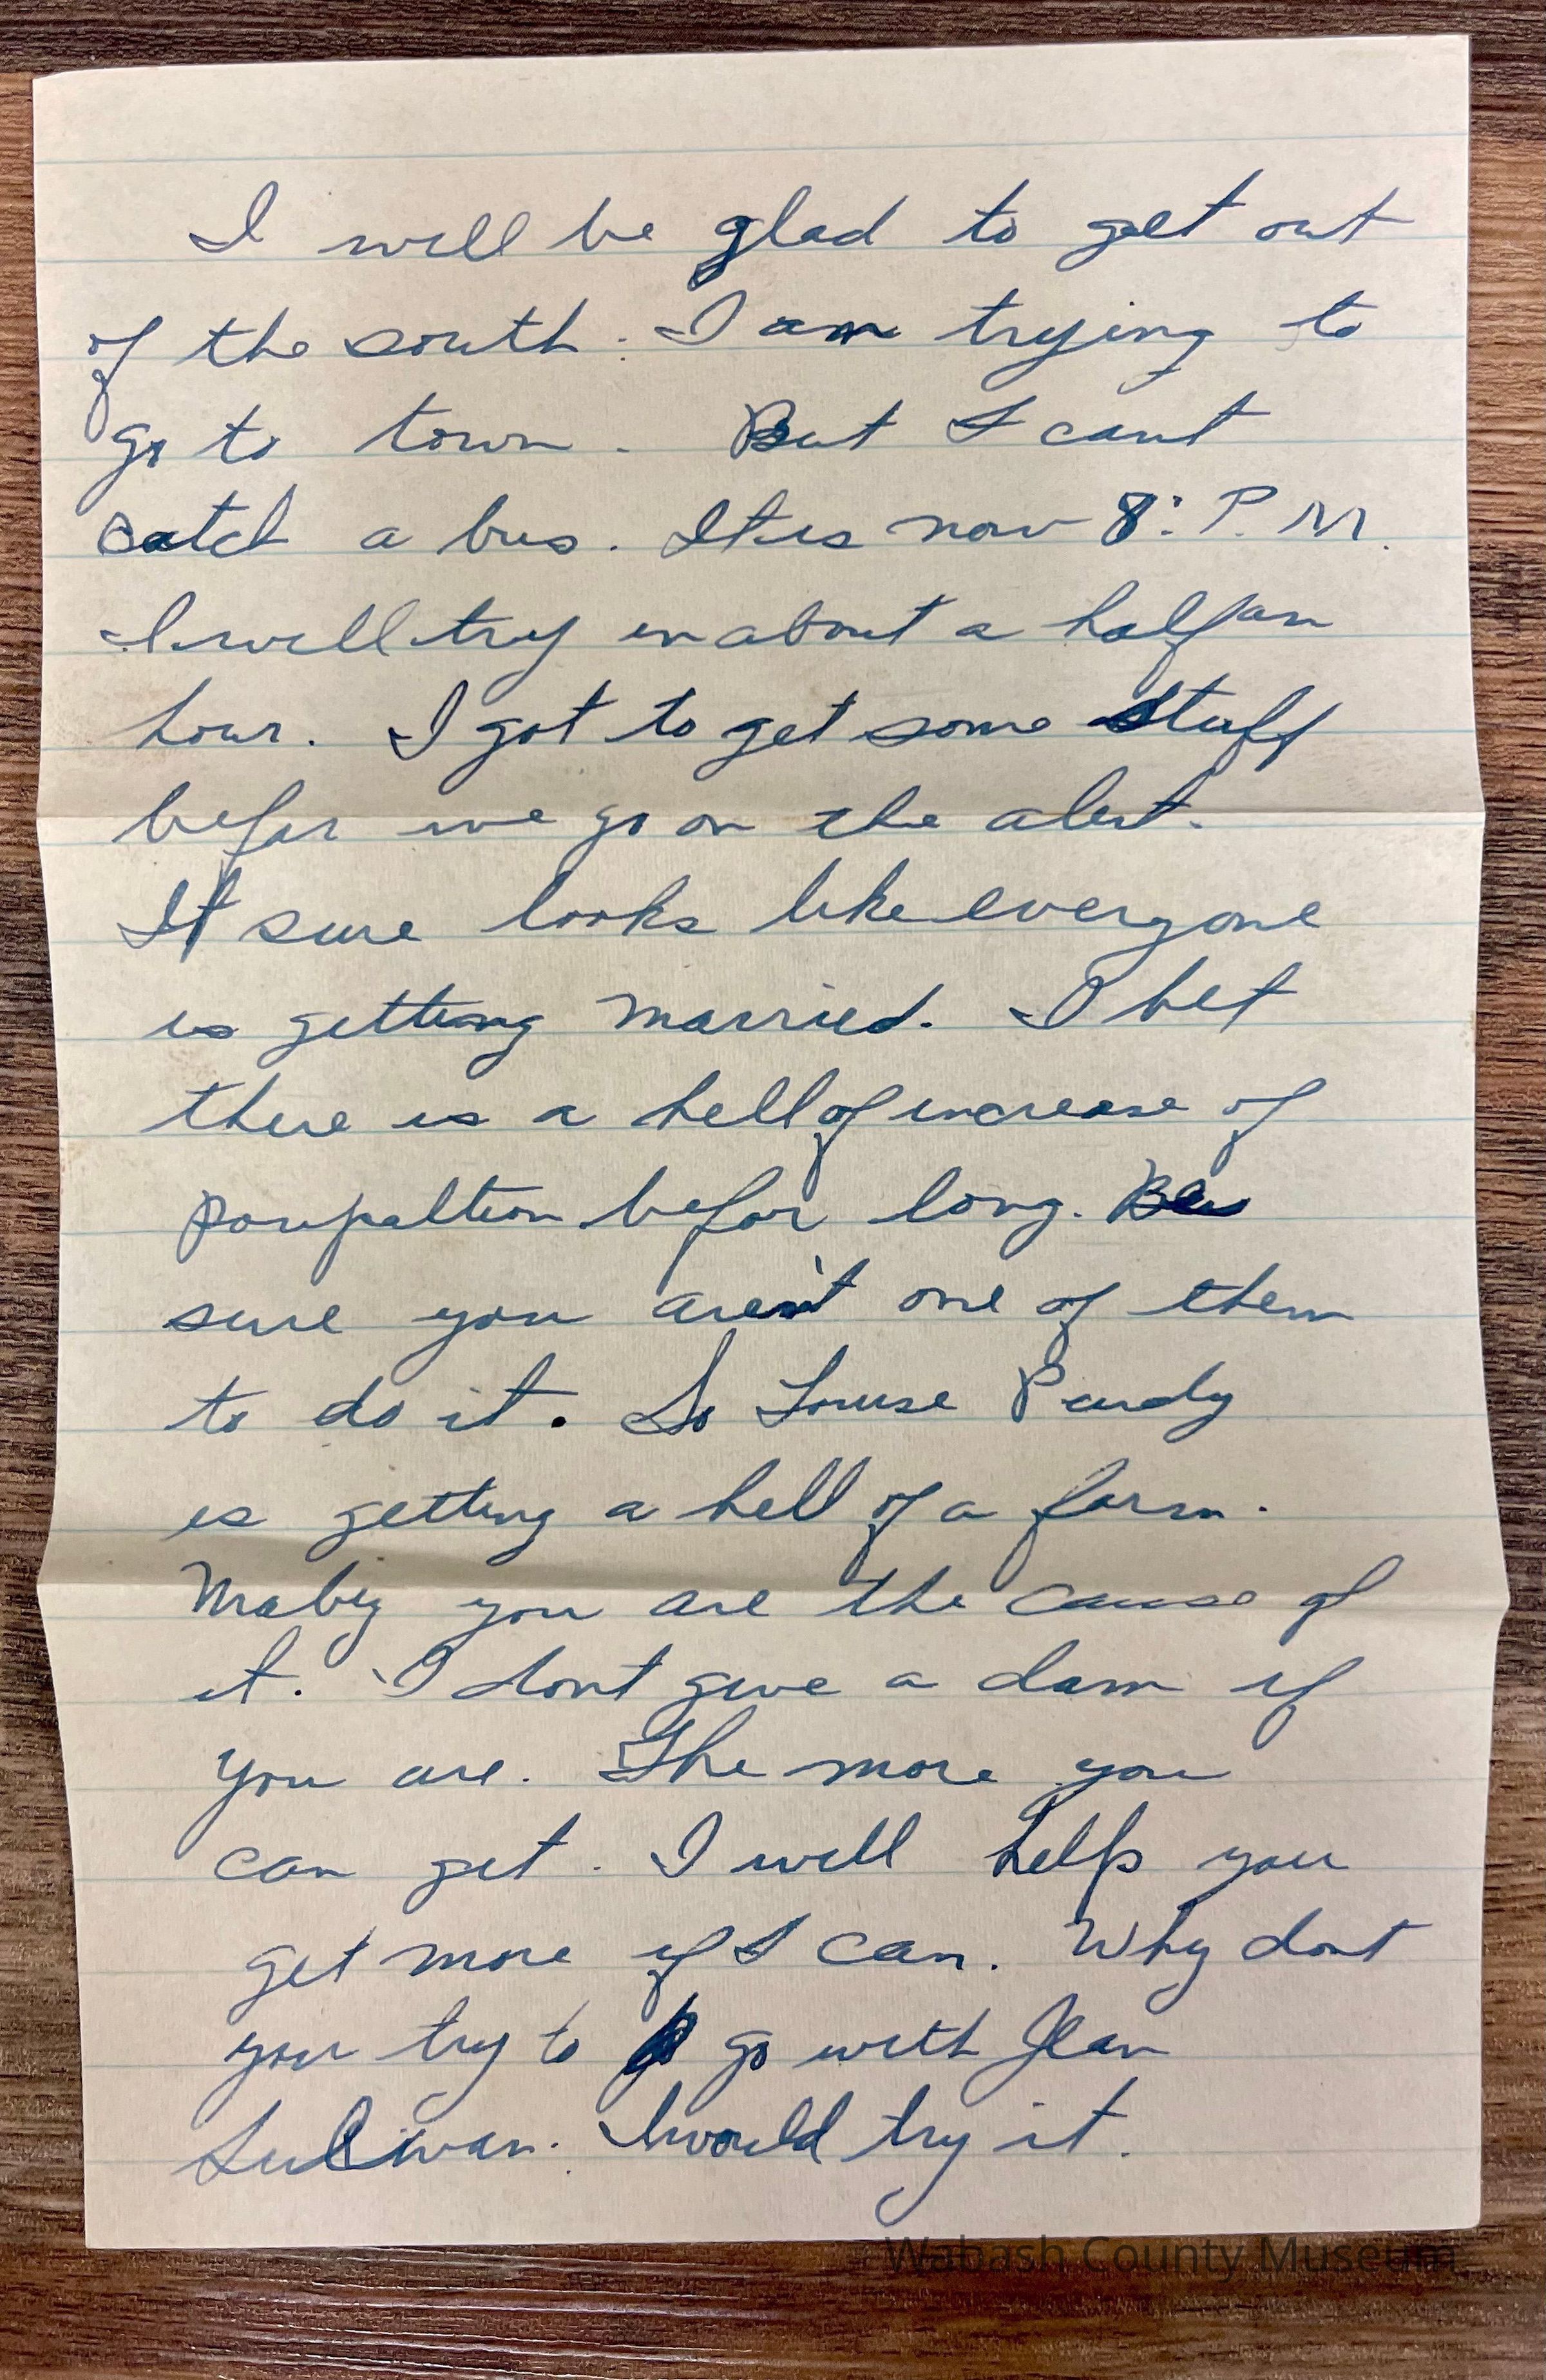 I will be glad to get out
of the south. I am trying to
go to town. But I cant
catch a bus. It is now 8: P.M.
I will try in about a half an
hour. I got to get some stuff
befor we go on the alert.
It sure looks like everyone
is getting married. I bet
there is a hell of increase of
poupaltion befor long. Be
sure you aren't one of them
to do it. So Louise Purdy
is getting a hell of a farm.
Mabey you are the cause of
it. I dont give a dam if
you are. The more you
can get. I will help you
get more if I can. Why dont
you try to go with Jean
Sulivan. I would try it.
Wabash County Museum